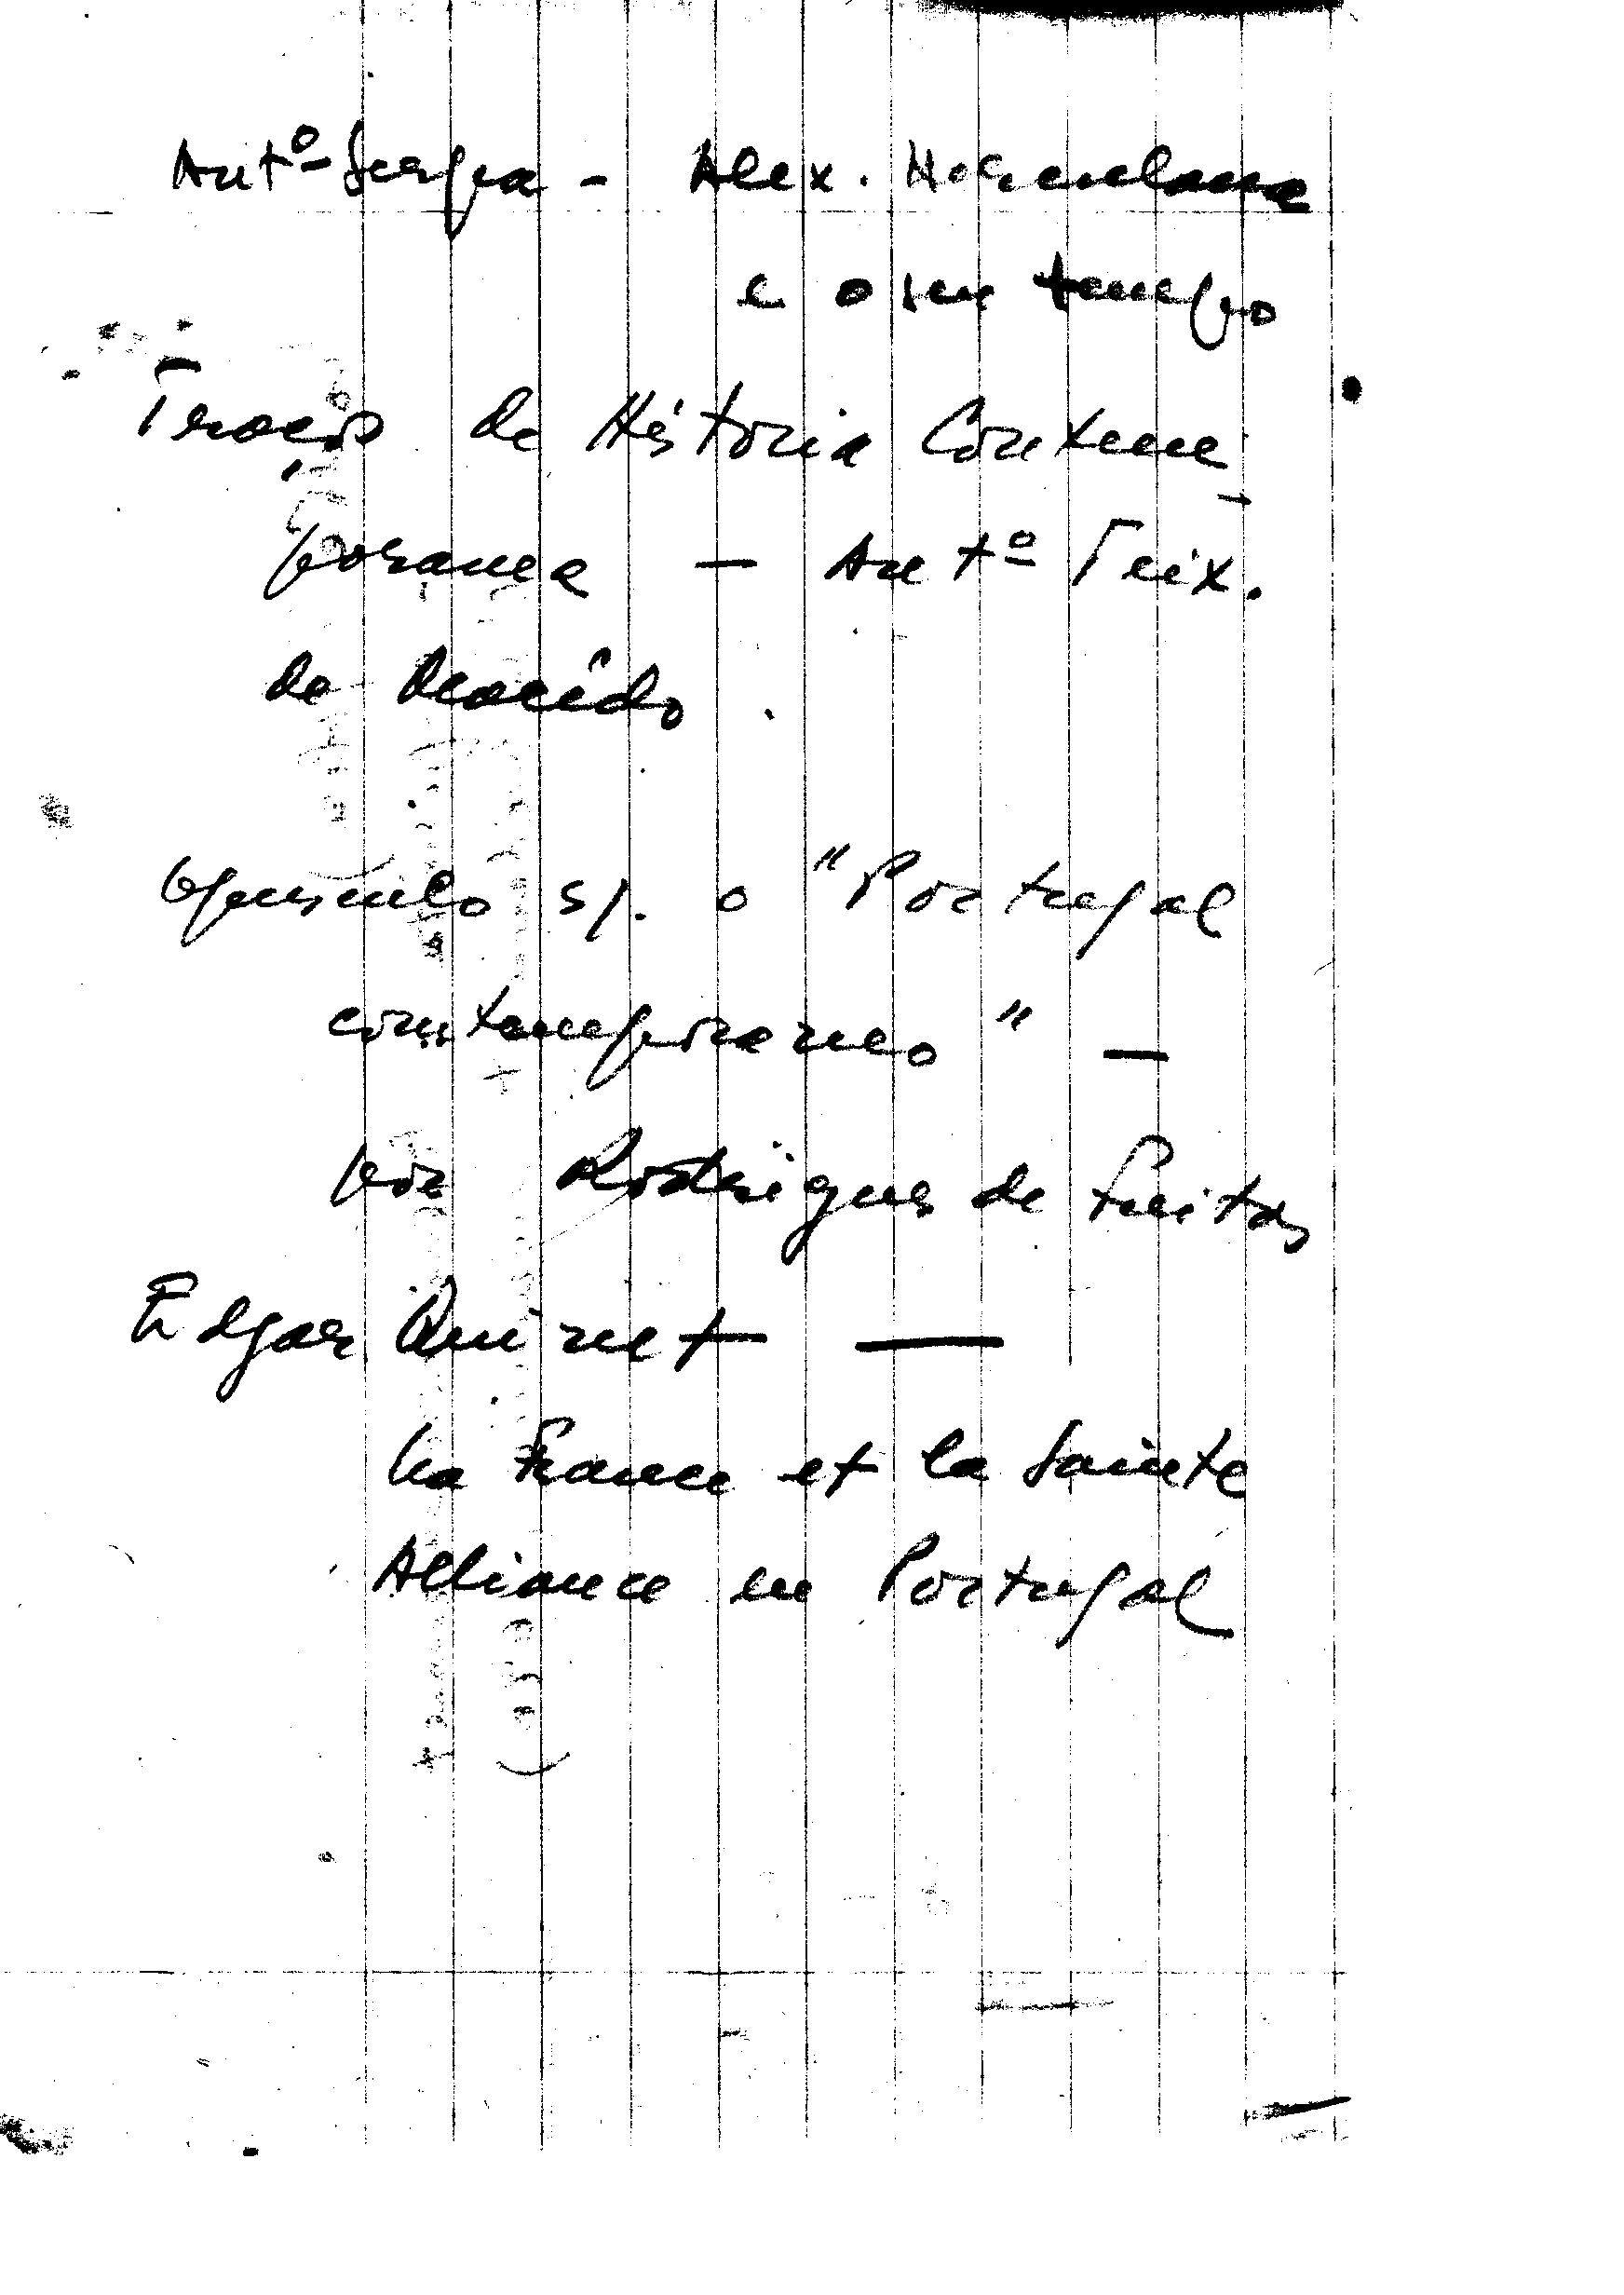 Antº Serpa - Alex. Herculano
e o seu tempo
Traços de História Contem-
poranea - Antº Teix.
de Macêdo.
Opusculo s/. o "Portugal
contemporaneo" -
por Rodrigues de Freitas
Edgar Quinet —
La France et la Sainte
Alliance en Portugal